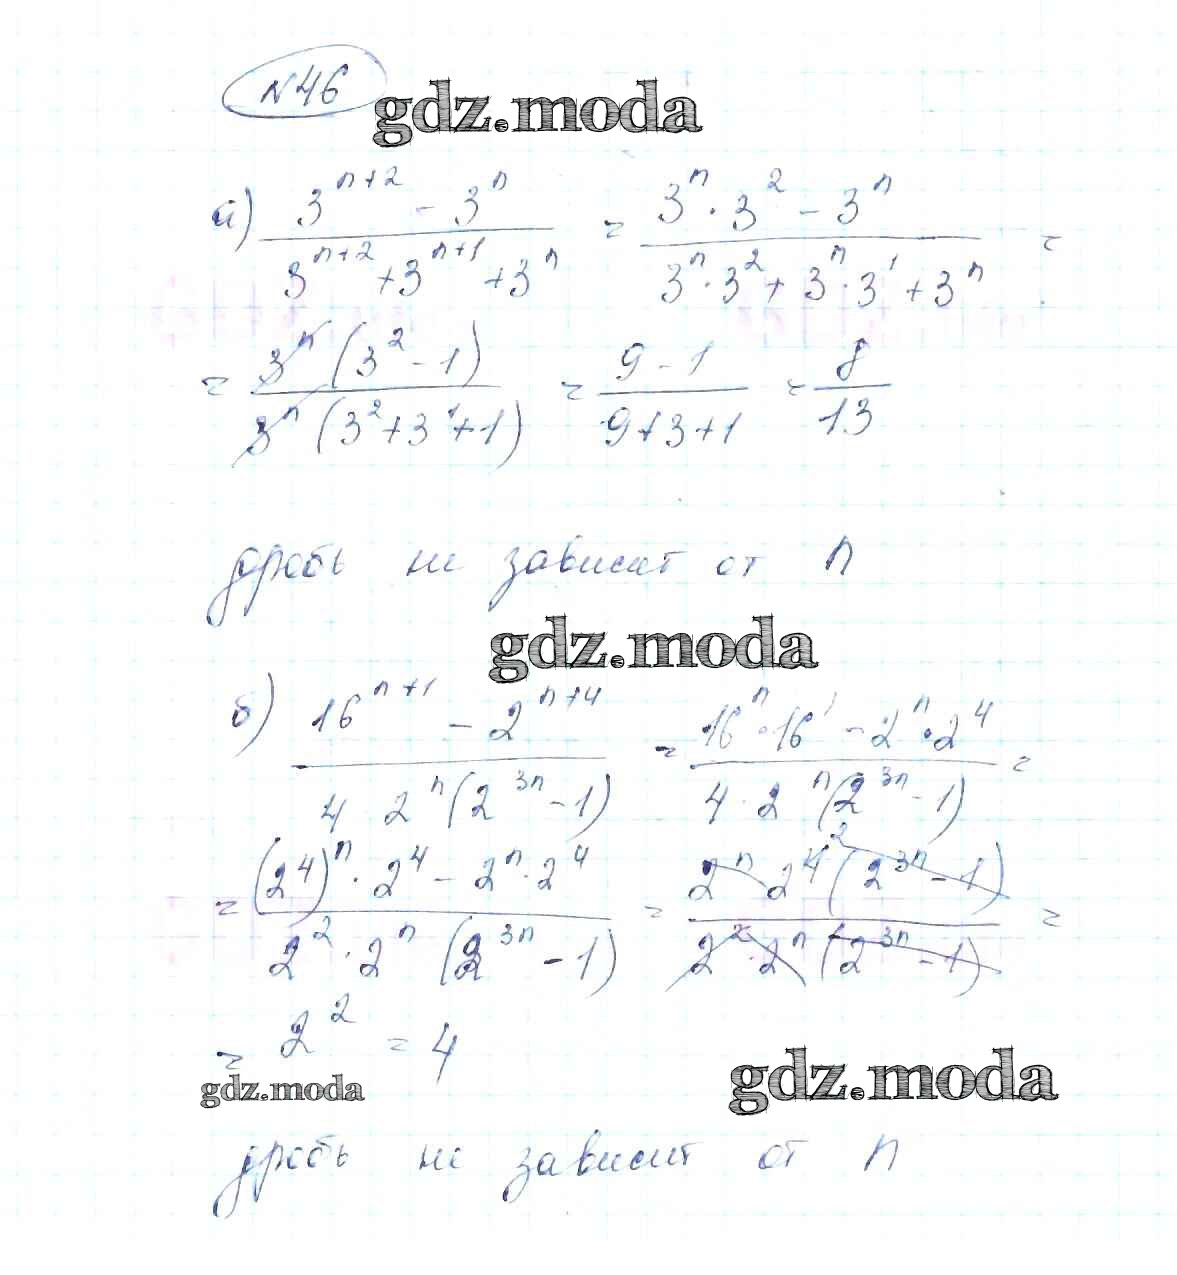 №46
gdz.moda
а) (3^(n+2) - 3^n)/(3^(n+2) + 3^(n+1) + 3^n) = (3^n · 3^2 - 3^n)/(3^n · 3^2 + 3^n · 3^1 + 3^n) =
= (3^n (3^2 - 1))/(3^n (3^2 + 3^1 + 1)) = (9 - 1)/(9 + 3 + 1) = 8/13
дробь не зависит от n
gdz.moda
б) (16^(n+1) - 2^(n+4))/(4 · 2^n (2^(3n) - 1)) = (16^n · 16^1 - 2^n · 2^4)/(4 · 2^n (2^(3n) - 1)) =
= ((2^4)^n · 2^4 - 2^n · 2^4)/(2^2 · 2^n (2^(3n) - 1)) = (2^n 2^4 (2^(3n) - 1))/(2^2 · 2^n (2^(3n) - 1)) =
= 2^2 = 4
gdz.moda
gdz.moda
дробь не зависит от n